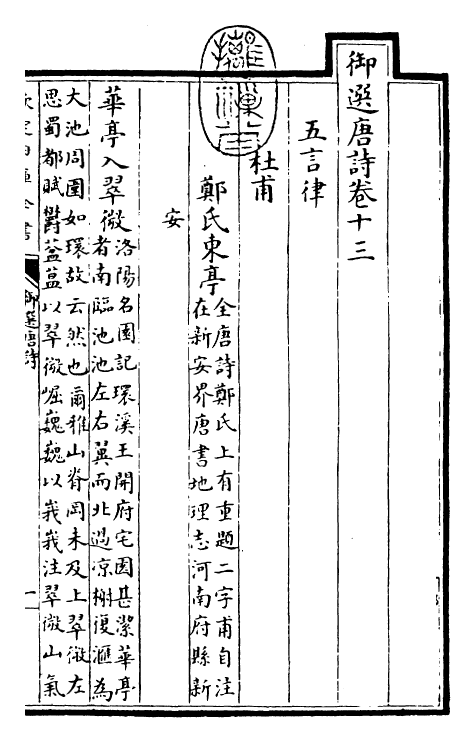 御選唐詩卷十三
五言律
杜甫
鄭氏東亭全唐詩鄭氏上有重題二字甫自注
在新安界唐書地理志河南府縣新
安
華亭入翠微洛陽名園記環溪王開府宅園甚潔華亭
者南臨池池左右翼而北過凉榭復滙為
大池周圍如環故云然也爾雅山脊岡未及上翠微左
思蜀都賦鬱葐蒀以翠微崛巍巍以峩峩注翠微山氣
御選唐詩
一